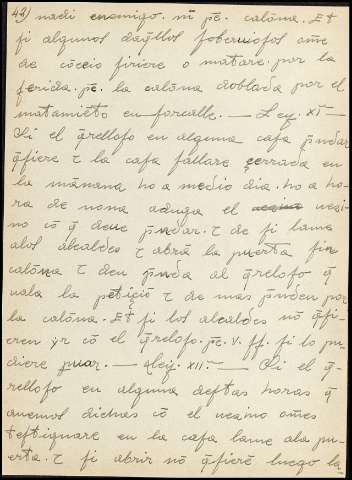 42) nadi enemigo. nĩ pẽ. calõna. Et
ſi algunos dãq̃llos ſoberuioſos om̃e
de cõceio firiere o matare. por la
ferida. pẽ. la calõna doblada por el
matamiẽto en forcalle. — Ley. XI —
Si el q̃relloſo en alguna caſa p̃ndar
q̃ſiere τ la caſa fallare çerrada en
la mãnana ho a medio dia. ho a ho-
ra de nona aduga el uezi-
no cõ q̃ deue p̃ndar. τ de ſi lame
alos alcaldes τ abrã la puerta ſin
calõna τ den p̃nda al q̃reloſo q̃
uala la petiçiõ τ de mas p̃nden por
la calõna. Et ſi los alcaldes nõ q̃ſi-
eren yr cõ el q̃reloſo. pẽ. V. ſſ. ſi lo pu-
diere puar. — Ley. XII. — Si el q̃-
relloſo en alguna deſtas horas q̃
auemos dichas cõ el uezino om̃es
teſtiguare en la caſa lame ala pu-
erta. τ ſi abrir nõ q̃ſierẽ luego la